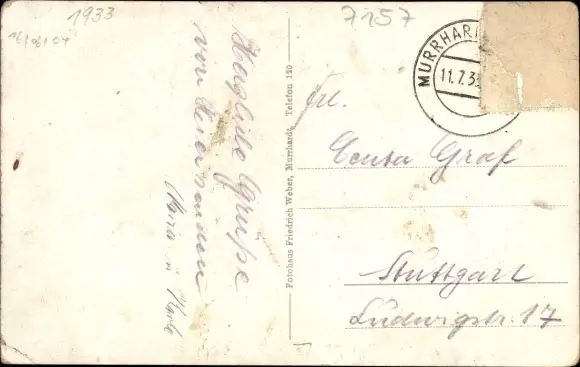 1933
7157
MURRHAR
11.7.3
Herzliche Grüße
von
Maria u. Karl
Fotohaus Friedrich Weber, Murrhardt, Telefon 120
Frl.
Graf
Stuttgart
Ludwigstr. 17